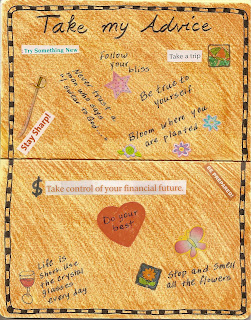 Take my Advice
Try Something New
Follow
your
bliss
Take a trip
Never trust a
man who says
Be true to
yourself
Stay Sharp!
Bloom where you
are planted
BE PREPARED
$ Take control of your financial future.
Do your
best
Life is
short. Use
the crystal
glasses
every day
Stop and smell
all the flowers